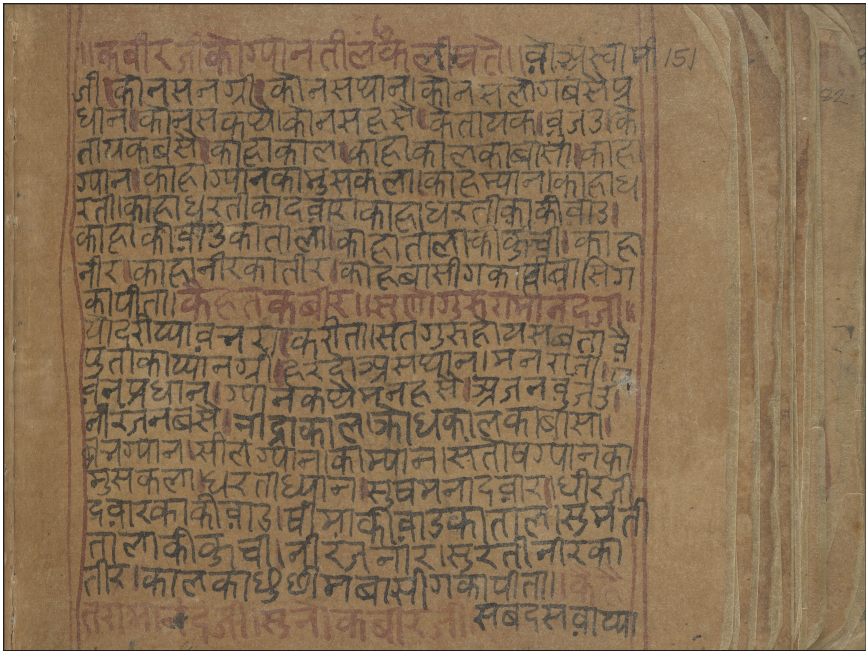 ॥कबीरजीकोग्यानतीलकलीषते॥वोअस्वामी 151
जी।कोनसनग्री।कोनसथान।कोनसलोगबसेप्र
धान।कोनसकथे।कोनसहसे।कतायक।बुजउ।क
तायकबसे।काहाकाल।काहाकालकाबासा।काहा
ग्यान।काहाग्यानकामुसकला।काहाम्यान।काहाध
रती।काहाधरतीकादवार।काहाधरतीकाकीवाड।
काहाकीवाडकाताला।काहातालाकाकुची।काहा
नीर।काहानीरकातीर।काहबासीगका
कापीता।केहतकबीर॥सुणोगुरुरामानदजी॥
सतगुरुहोय
पुतीकाय्यानग्री।हरदाअसथान।मनराजा।
वनप्रधान।ग्यानकथेमनहसे।अजनबुजउ।
नीरजनबसे।नीद्राकालक्रोधकालकाबासा।
ग्यान।सीलग्यानकाम्यान।सतोषग्यानका
मुसकला।धरताध्यान।सुषमनादवार।धीरजी
दवारकाकीवाड।षीमाकीवाडकाताल।सुमती
तालाकीकुची।नीरजनीर।सुरतीनीरका
तीर।कालकाधुछीमबासीगकापीता॥केह
तरामानंदजी॥सुनोकबीरजी॥सबदसवाय्या